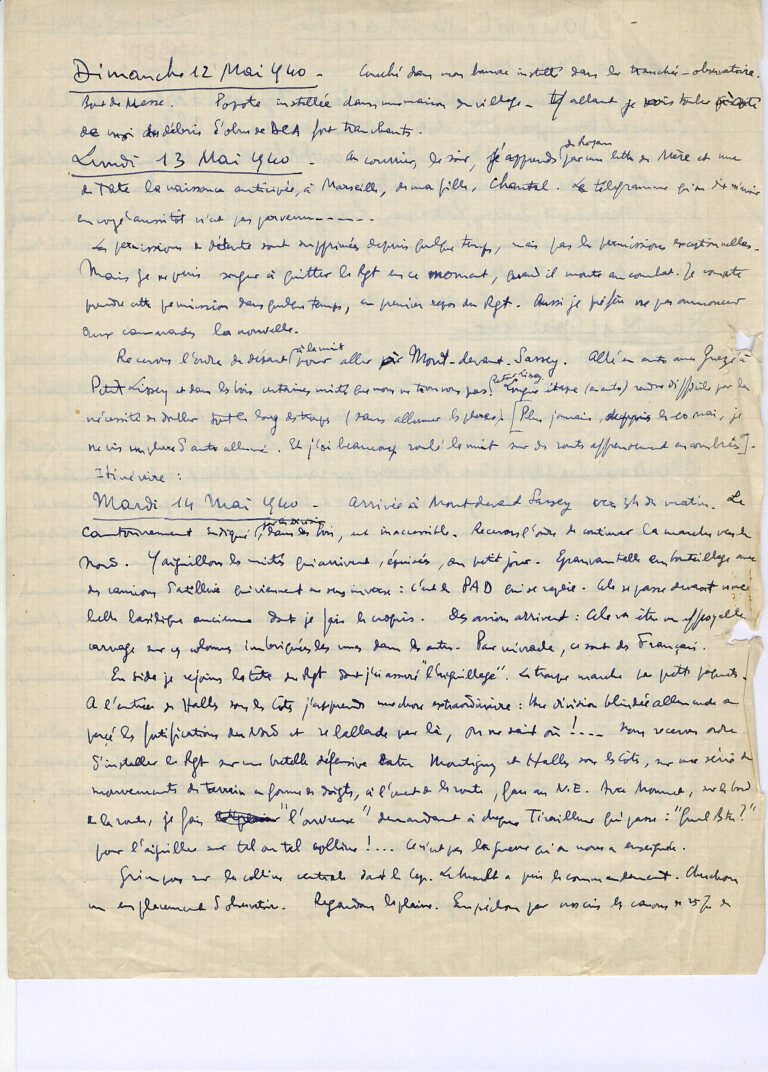 Dimanche 12 Mai 1940 - Couché dans mon bureau installé dans la tranchée-observatoire.
Bout de Messe. Popote installée dans une maison du village - En allant je
de moi des débris d'obus de DCA fort tranchants.
Lundi 13 Mai 1940 - Au courrier, le soir, j'apprends de Royan par une lettre de Mère et une
de Tate la naissance anticipée, à Marseille, de ma fille, Chantal. Le télégramme qu'on dit m'avoir
envoyé aussitôt n'est pas parvenu -----
Les permissions de détente sont supprimées depuis quelque temps, mais pas les permissions exceptionnelles.
Mais je ne puis songer à quitter le Rgt en ce moment, quand il monte au combat. Je compte
prendre cette permission dans quelque temps, au premier repos du Rgt. Aussi je préfère ne pas annoncer
aux camarades la nouvelle.
Recevons l'ordre de départ (à la nuit) pour aller à Mont-devant-Sassey. Allé en auto avec à
Petit Lissey et dans les bois certaines unités que nous ne trouvons pas. Longue étape (en auto) rendue difficile par la
nécessité de doubler tout le long des troupes (sans allumer les phares). [Plus jamais, depuis le 10 mai, je
ne vis un phare d'auto allumé. Et j'ai beaucoup roulé la nuit sur des routes affreusement encombrées].
Itinéraire :
Mardi 14 Mai 1940 - Arrivée à Mont devant Sassey vers 3h du matin. Le
cantonnement indiqué, dans les bois, est inaccessible. Recevons l'ordre de continuer la marche vers le
Nord. J'aiguillonne les unités qui arrivent, épuisées, au petit jour. Epouvantable embouteillage avec
des camions d'artillerie qui viennent en sens inverse : c'est le PAD qui se replie. Cela se passe devant une
belle basilique ancienne dont je fais le croquis. Des avions arrivent : cela va être un effroyable
carnage sur ces colonnes imbriquées les unes dans les autres. Par miracle, ce sont des Français.
En side je rejoins la tête du Rgt dont j'ai assuré "l'aiguillage". La troupe marche par petits paquets.
A l'entrée de Halles sous les Côts j'apprends une chose extraordinaire : Une division blindée allemande a
percé les fortifications du Nord et se ballade par là, on ne sait où !... Nous recevons ordre
d'installer le Rgt sur une bretelle défensive entre Montigny et Halles sous les Côts, sur une série de
mouvements de terrain en forme de doigts, à l'ouest de la route, face au N.E. Avec Monnet, sur le bord
de la route, je fais "l'ouvreuse" demandant à chaque Tirailleur qui passe : "Quel Bton ?"
pour l'aiguiller sur tel ou tel colline !... Ce n'est pas la guerre qu'on nous a enseignée.
Grimpons sur la colline centrale dont le Cap. a pris le commandement. Cherchons
un emplacement d'observatoire. Regardons la plaine. Empêchons par nos cris les canons de 25 de